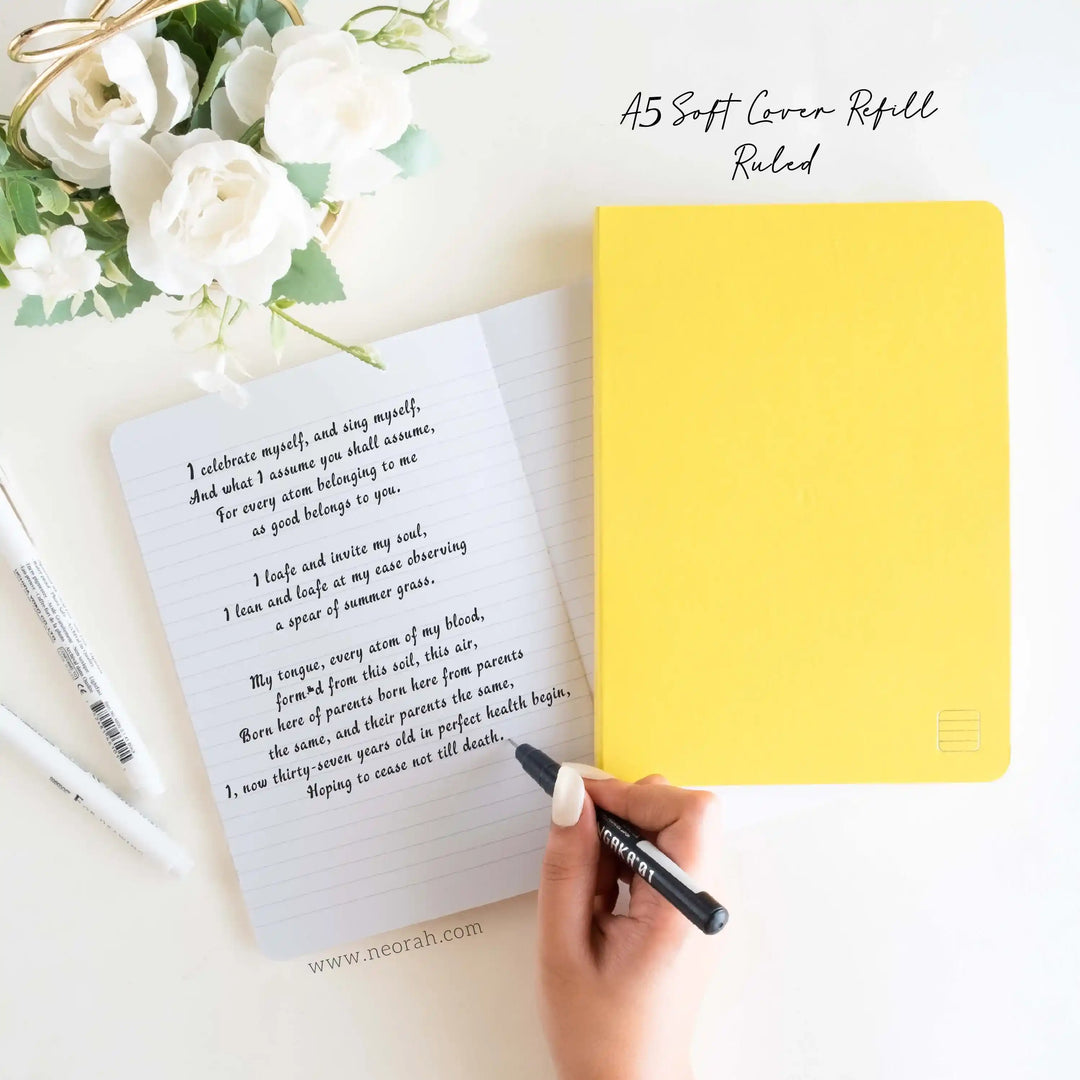 A5 Soft Cover Refill
Ruled
I celebrate myself, and sing myself,
And what I assume you shall assume,
For every atom belonging to me
as good belongs to you.
I loafe and invite my soul,
I lean and loafe at my ease observing
a spear of summer grass.
My tongue, every atom of my blood,
form'd from this soil, this air,
Born here of parents born here from parents
the same, and their parents the same,
I, now thirty-seven years old in perfect health begin,
Hoping to cease not till death.
www.neorah.com